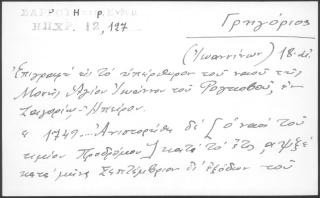 ΗΠΧΡ. 12, 127
Γρηγόριος
(Ἰωαννίνων) 18. αἰ.
Ἐπιγραφὴ εἰς τὸ ὑπέρθυρον τοῦ ναοῦ τῆς
Μονῆς Ἁγίου Ἰωάννου τοῦ Ρογκοβοῦ, ἐν
Ζαγορίῳ - Ἠπείρου.
α 1749... Ἀνιστορήθη δὲ [ὁ ναὸς τοῦ
τιμίου Προδρόμου] κατὰ τὸ ἔτος αψξε
κατὰ μῆνα Σεπτέμβριον δι' ἐξόδων τοῦ